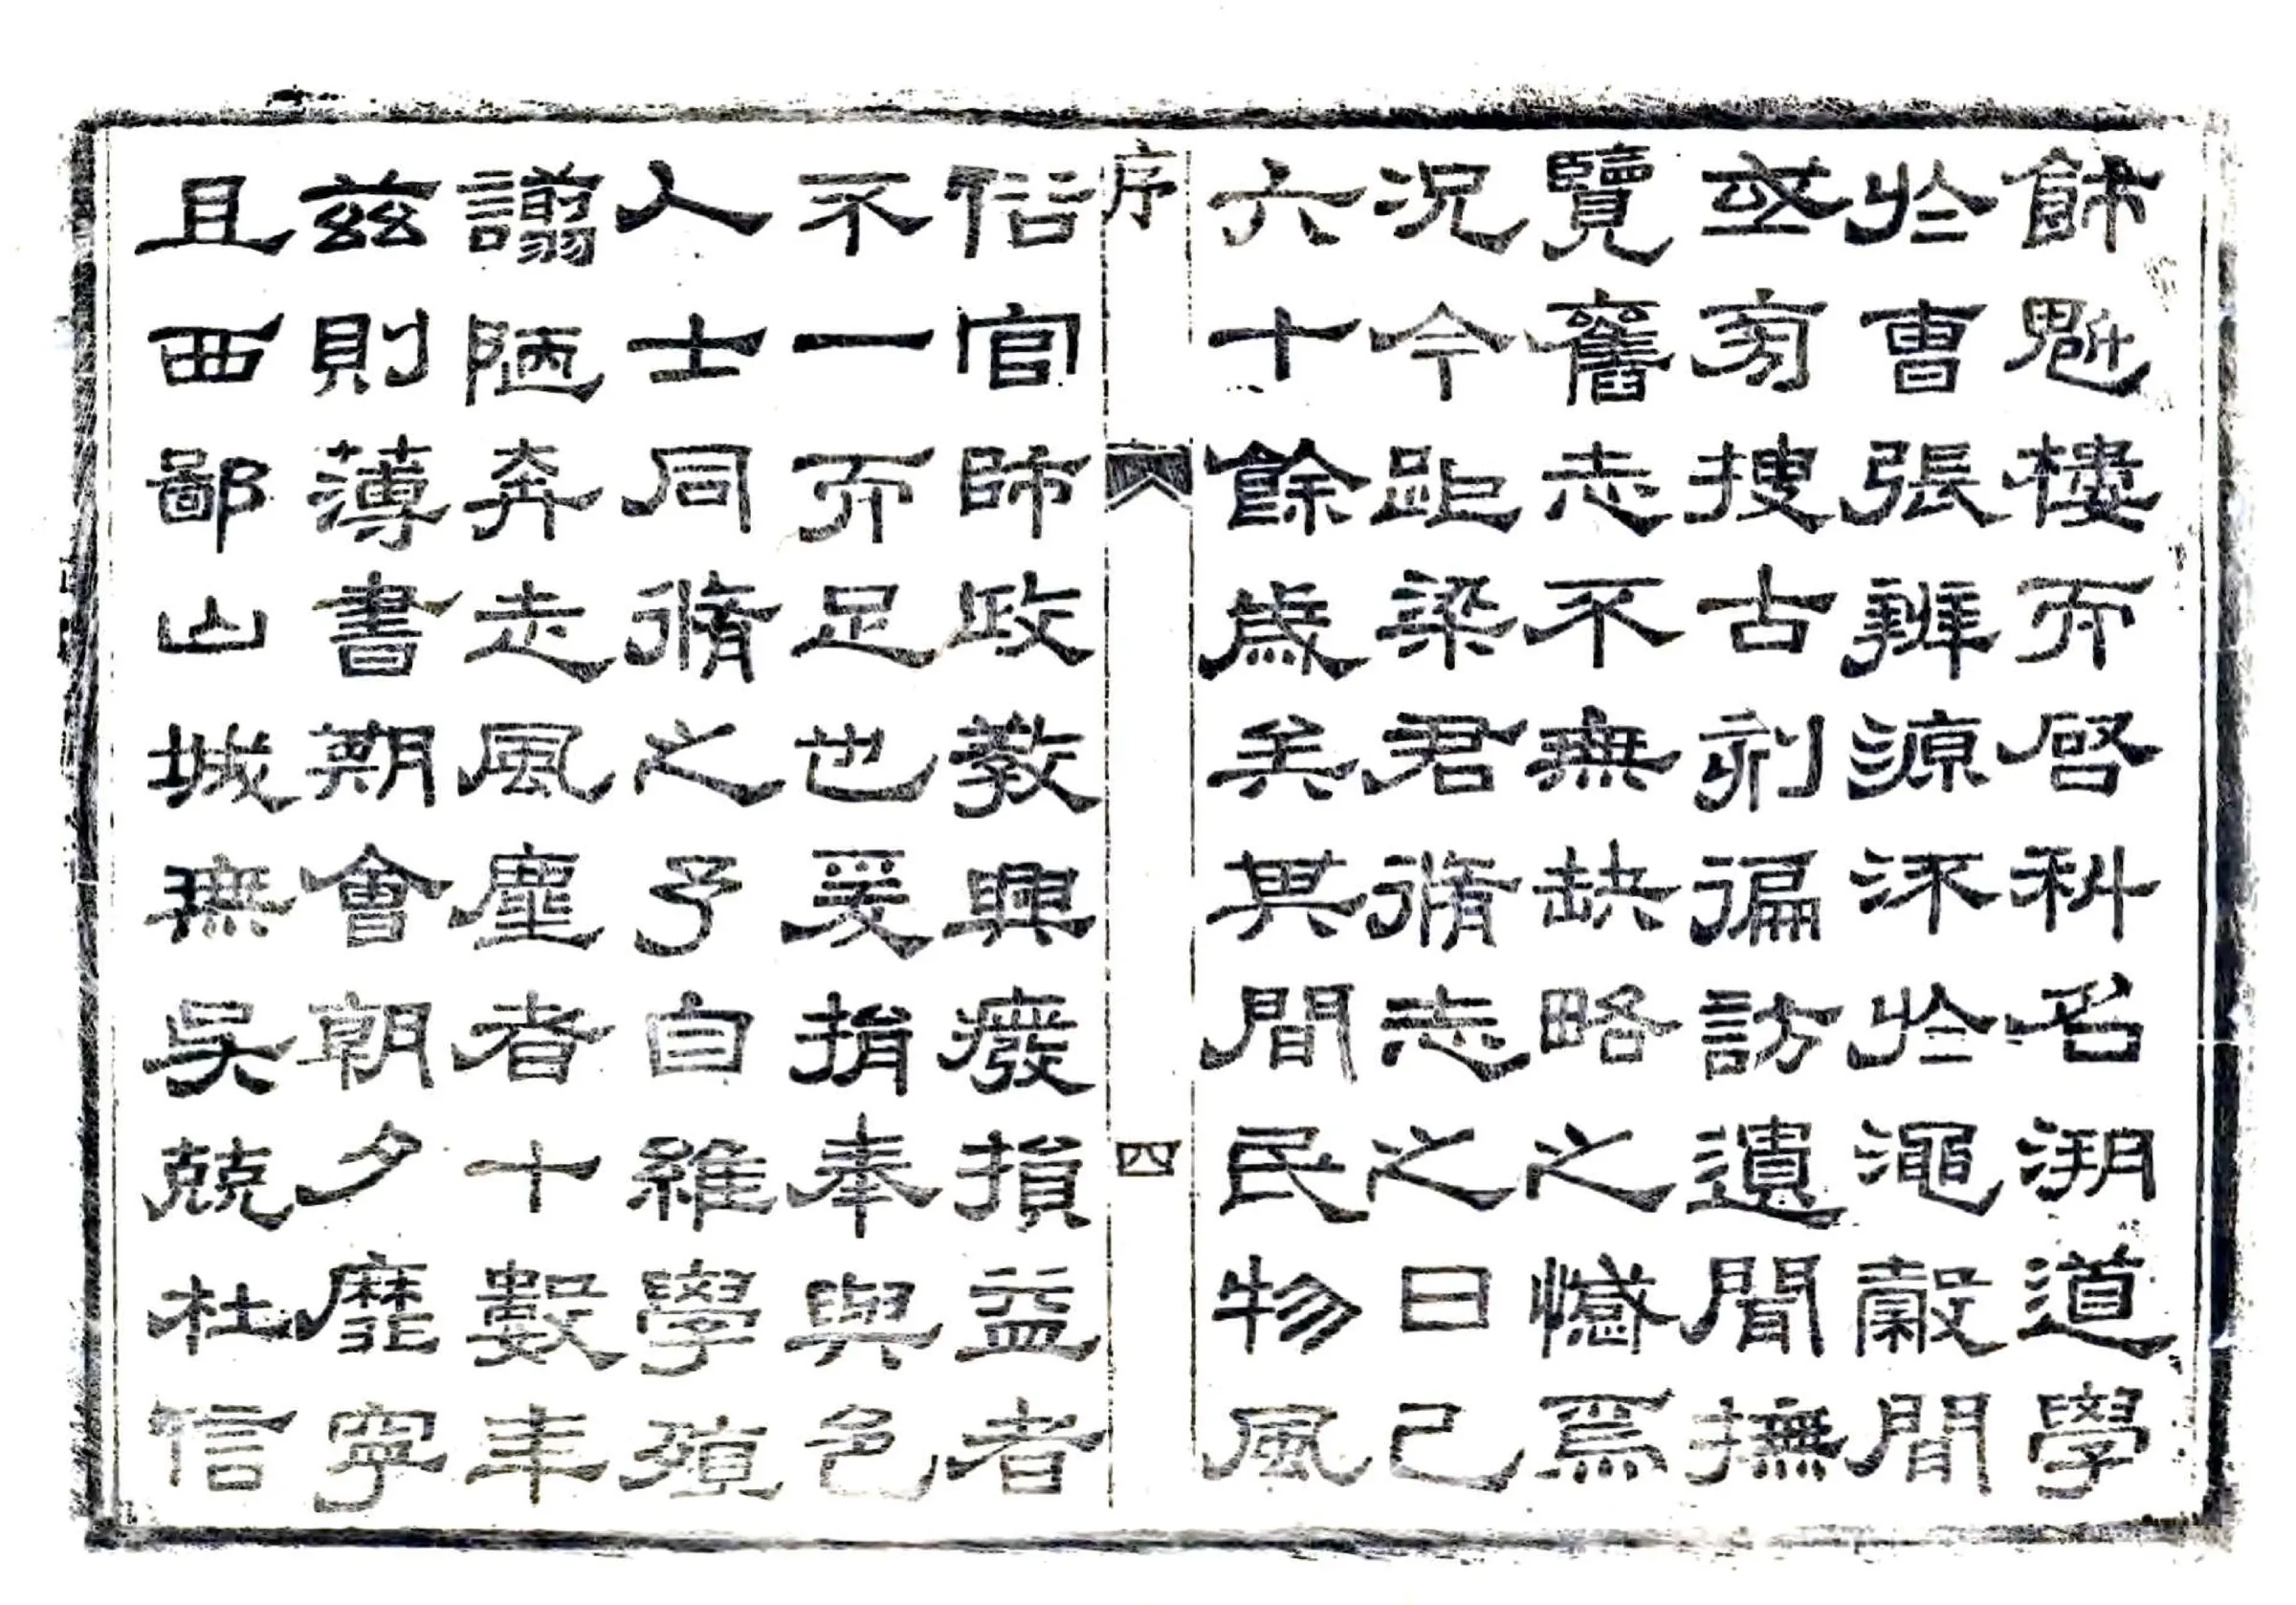 飾魁樓而啓科名溯道學
於曹張辨源流於澠穀間
或旁搜古刹徧訪遺聞撫
覽舊志不無缺略之憾焉
況今距梁君脩志之日已
六十餘歲矣其間民物風
序 四
俗官師政教興廢損益者
不一而足也爰捐奉與邑
人士同脩之予自維學殖
譾陋奔走風塵者十數年
茲則薄書期會朝夕靡寧
且西鄙山城無吳兢杜信